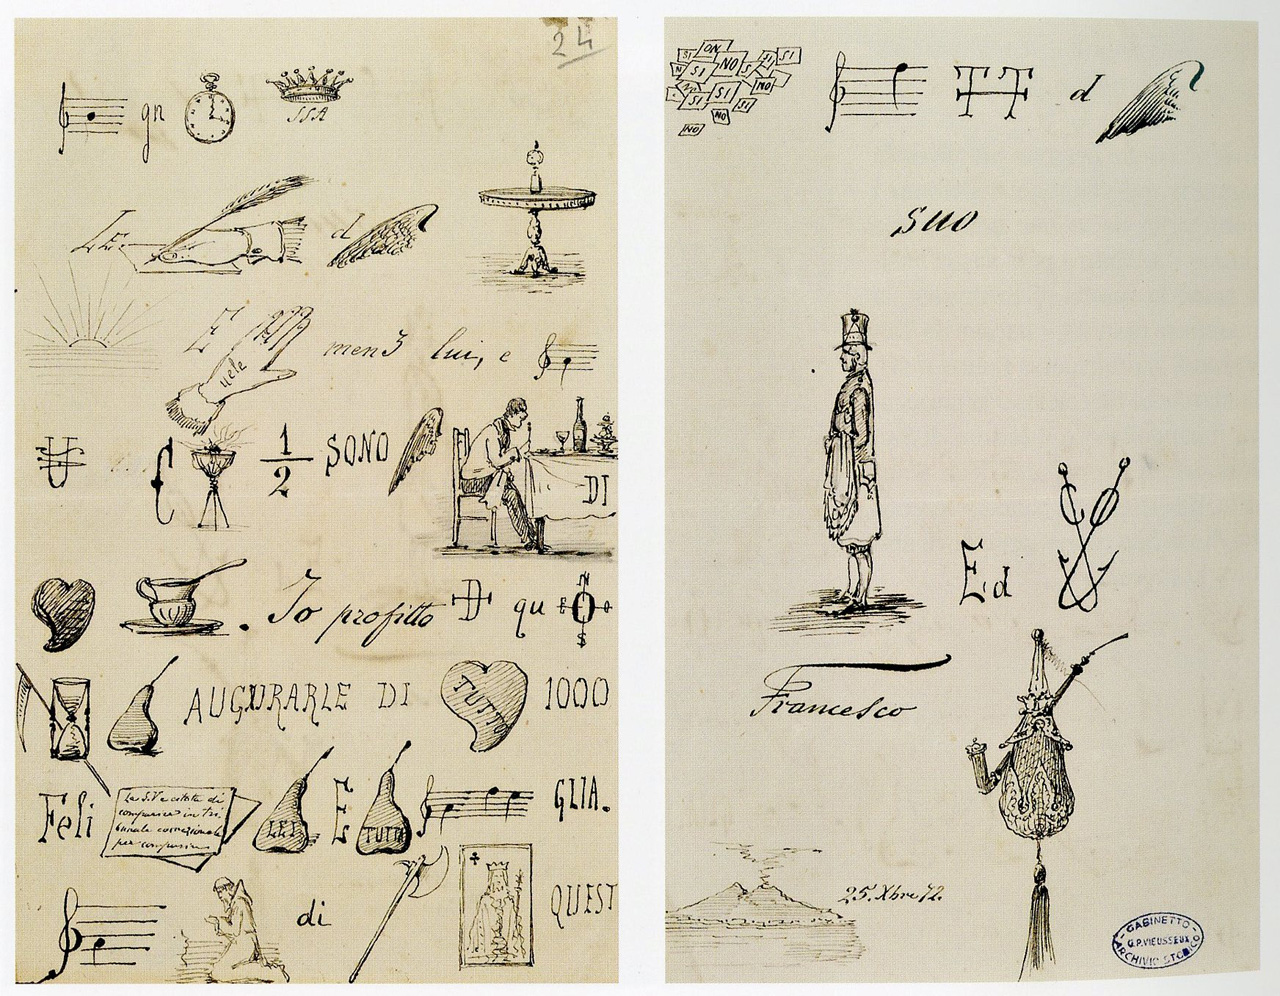 24
gn
SSA
Le
d
E
uele
men3 lui, e
1/2 SONO
DI
Io profitto D qu N E O O S
AUGURARLE DI TUTTO 1000
Feli
La S.V. e citata di
comparire in tri
bunale correzionale
per
LEI E TUTTA GLIA.
di QUEST
ON
SI
NO
SI
NO
SI
SI
NO
SI
SI
SI
NO
NO
TT d
suo
Ed
Francesco
25. Xbre 72.
GABINETTO
G.P. VIEUSSEUX
ARCHIVIO STORICO